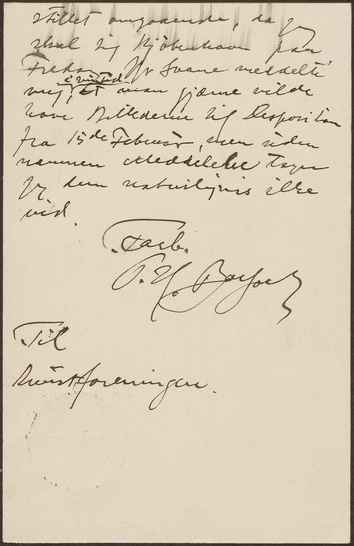 stillet omgaaende, da jeg
skal til Kjøbenhavn paa
Fredag. Hr Svane meddelte
mig, at man gjærne vilde
have Billederne til Disposition
fra 15de Februar, men uden
nærmere Meddelelse tager
jeg dem naturligvis ikke
ind.
Til
Kunstforeningen.